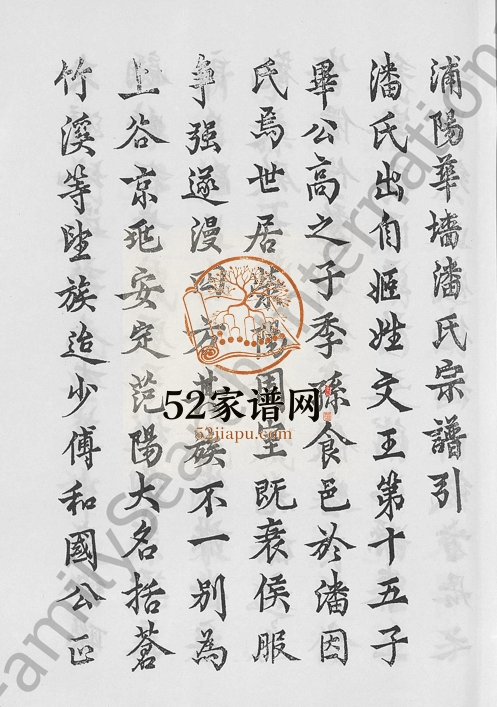 浦陽華墻潘氏宗譜引
潘氏出自姬姓文王第十五子
畢公高之子季孫食邑於潘因
氏焉世居滎陽周室既衰侯服
争强遂漫四方其族不一别為
上谷京兆安定范陽大名括蒼
竹溪等望族迨少傅和國公正
52家谱网
52jiapu.com
FamilySearch International